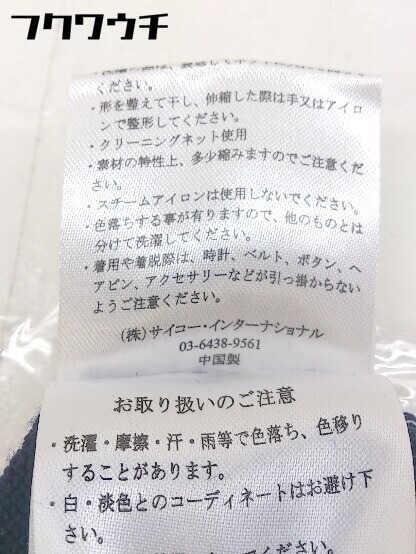 フクワウチ
ください。
・形を整えて干し、伸縮した際は手又はアイロ
ンで整形してください。
・クリーニングネット使用
・素材の特性上、多少縮みますのでご注意くだ
さい。
・スチームアイロンは使用しないでください。
・色落ちする事が有りますので、他のものとは
分けて洗濯してください。
・着用や着脱際は、時計、ベルト、ボタン、ヘ
アピン、アクセサリーなどが引っ掛からない
ようご注意ください。
(株)サイコー・インターナショナル
03-6438-9561
中国製
お取り扱いのご注意
・洗濯・摩擦・汗・雨等で色落ち、色移り
することがあります。
・白・淡色とのコーディネートはお避け下
さい。
ください。